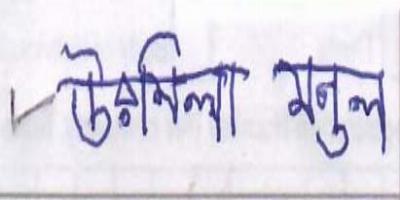 উরমিলা মনুল